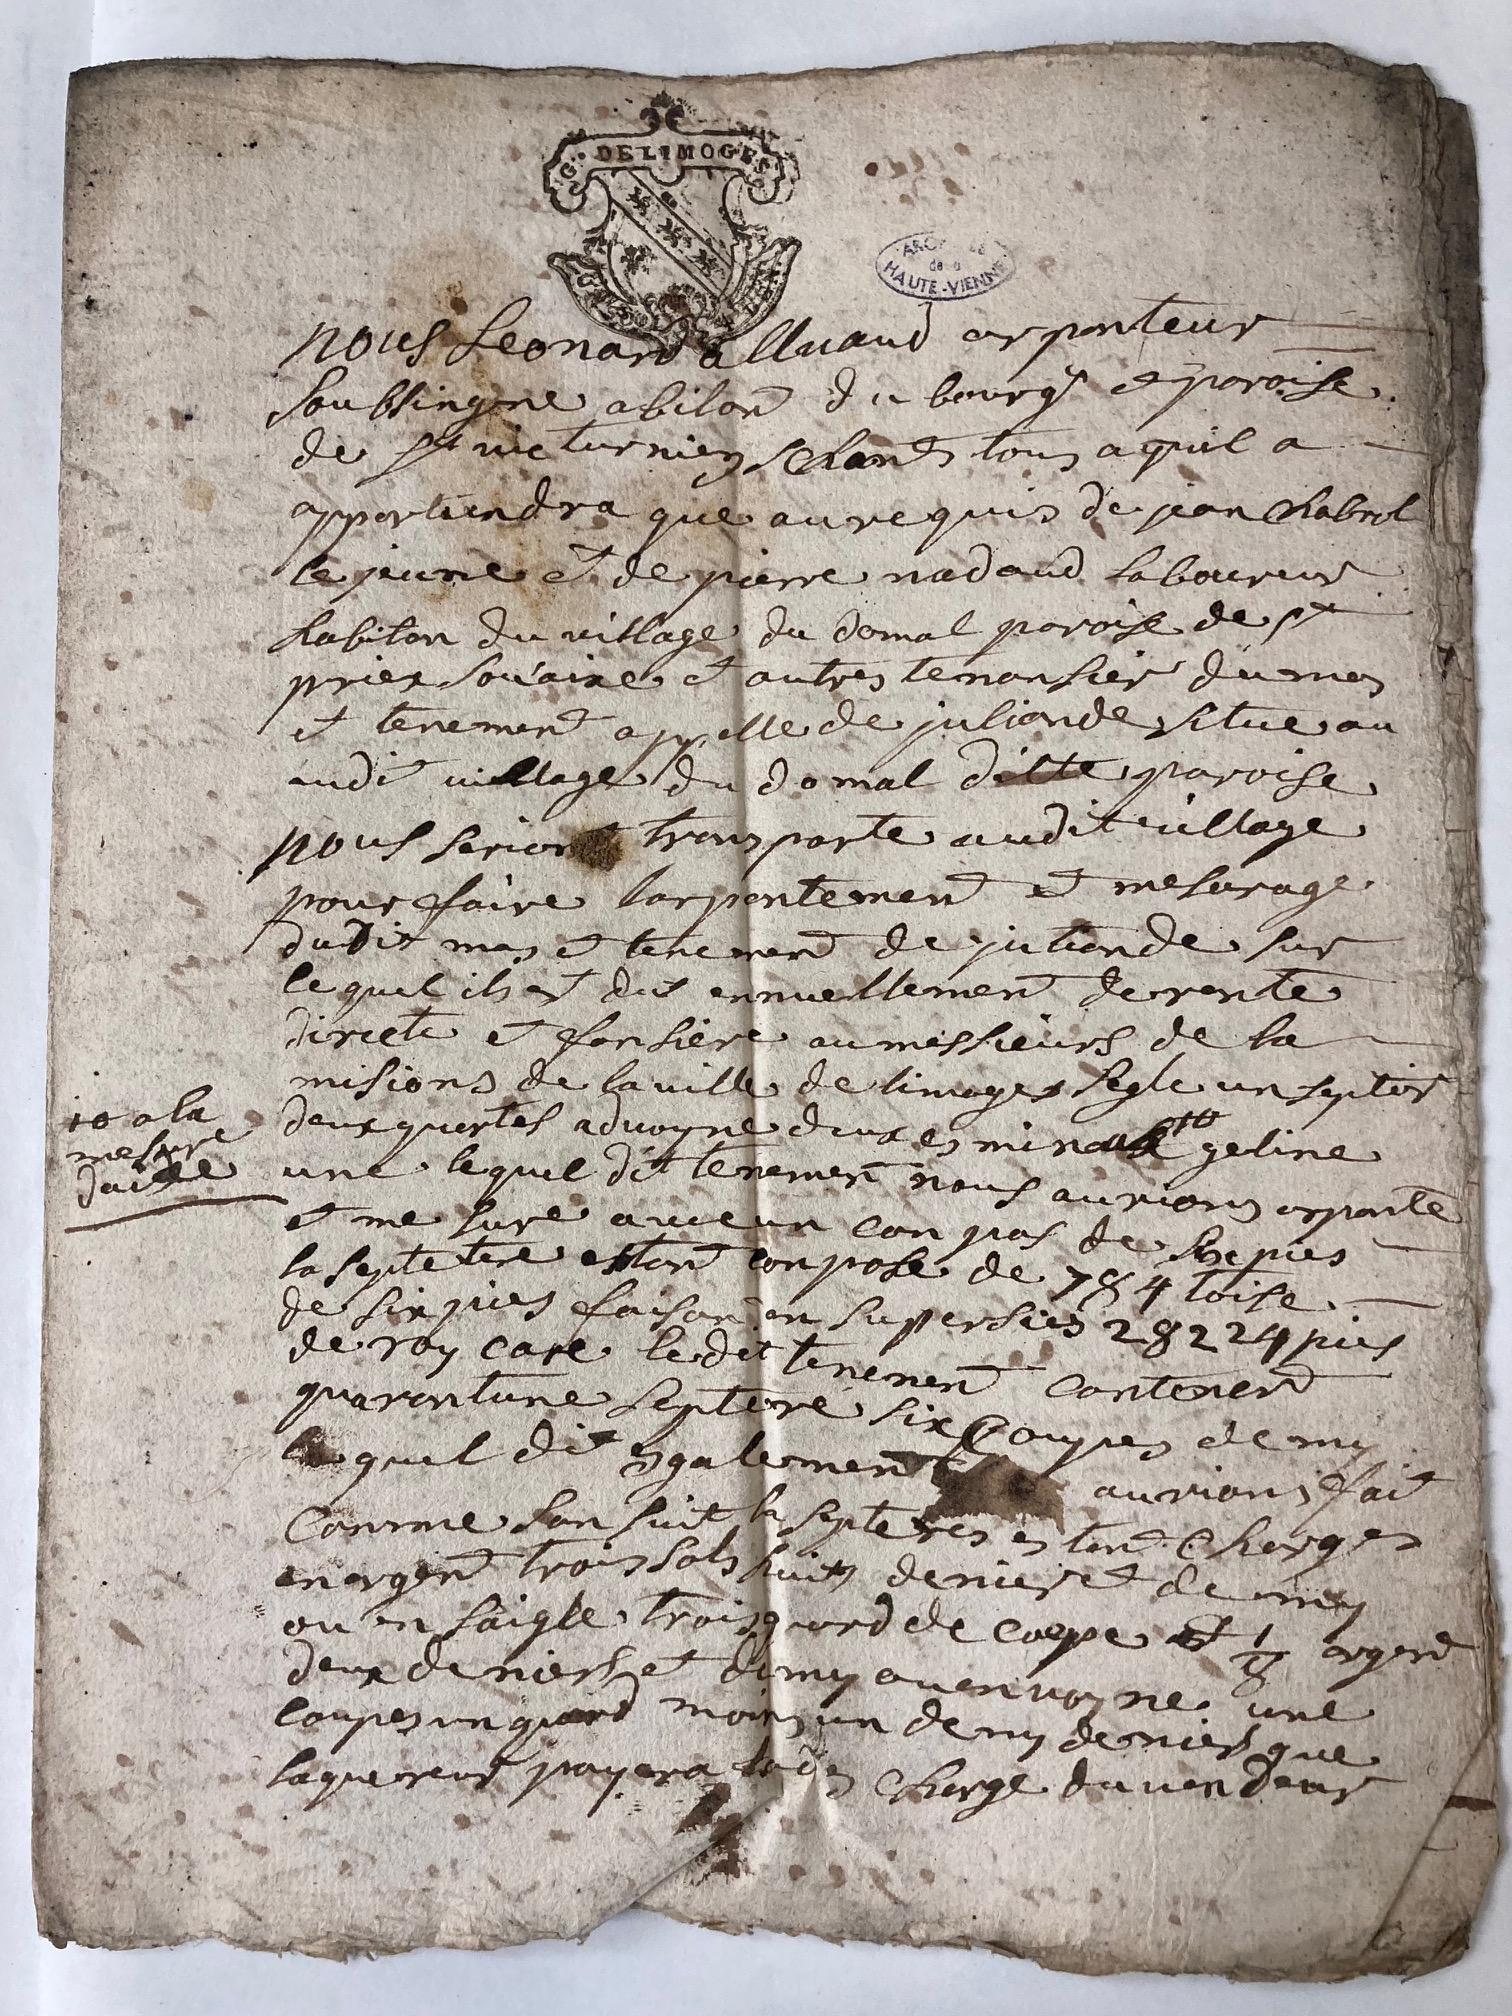 G. DE LIMOGES
ARCHIVES
de la
HAUTE-VIENNE
nous Leonard alluaud arpenteur
soubsingne abitant du bourgt et paroise
de st victurnien schant tous a quil a
appartiendra que au requis de jean chabrol
le jeune et de pierre nadaud laboureur
habitan du village du domal paroise de st
priex souaire et autres tenansier du mas
et tenement appelle de julionde situe au
audit village du domal ditte paroise
nous serions transporte audit village
pour faire larpentement et mesurage
dudit mas et tenement de julionde sur
lequel ils est dus annuellement de rente
directe et fonsiere au messieurs de la
misions de la ville de limoges segle un septier
deux quartes advoyne deux eminaux geline
10 a la
mesure
daixe
une lequel dit tenement nous aurions arpente
et mesure avec un conpas de six pies
la septetere estant conpose de 784 toise
de six pies faisant en supersies 28224 pies
de roy care le dit tenement contenent
quarantune septere six coupes demy
lequel dit egalement aurions fait
comme san suit la septeres estant charges
en argent trois sols huits denier et demy
ou en saigle trois quard de coupe et 1/8 argent
deux deniers et demy avenvoyne une
coupes un quard moins un demy denier que
laquereur payera lade charge du vendeur